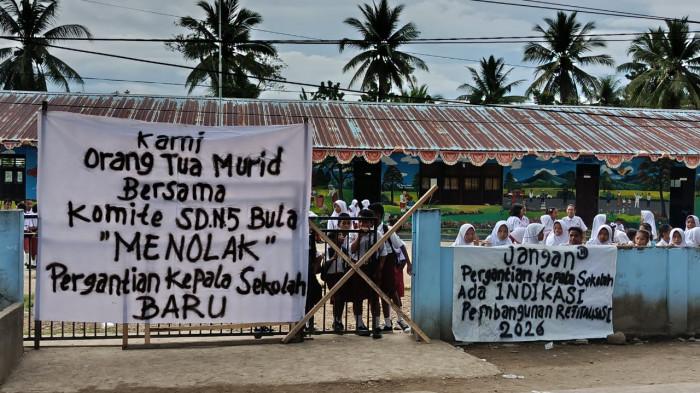 Kami
Orang Tua Murid
Bersama
Komite SD.N.5 Bula
"MENOLAK"
Pergantian Kepala Sekolah
BARU
Jangan²
Pergantian Kepala Sekolah
Ada INDIKASI
Pembangunan Refitalisasi
2026